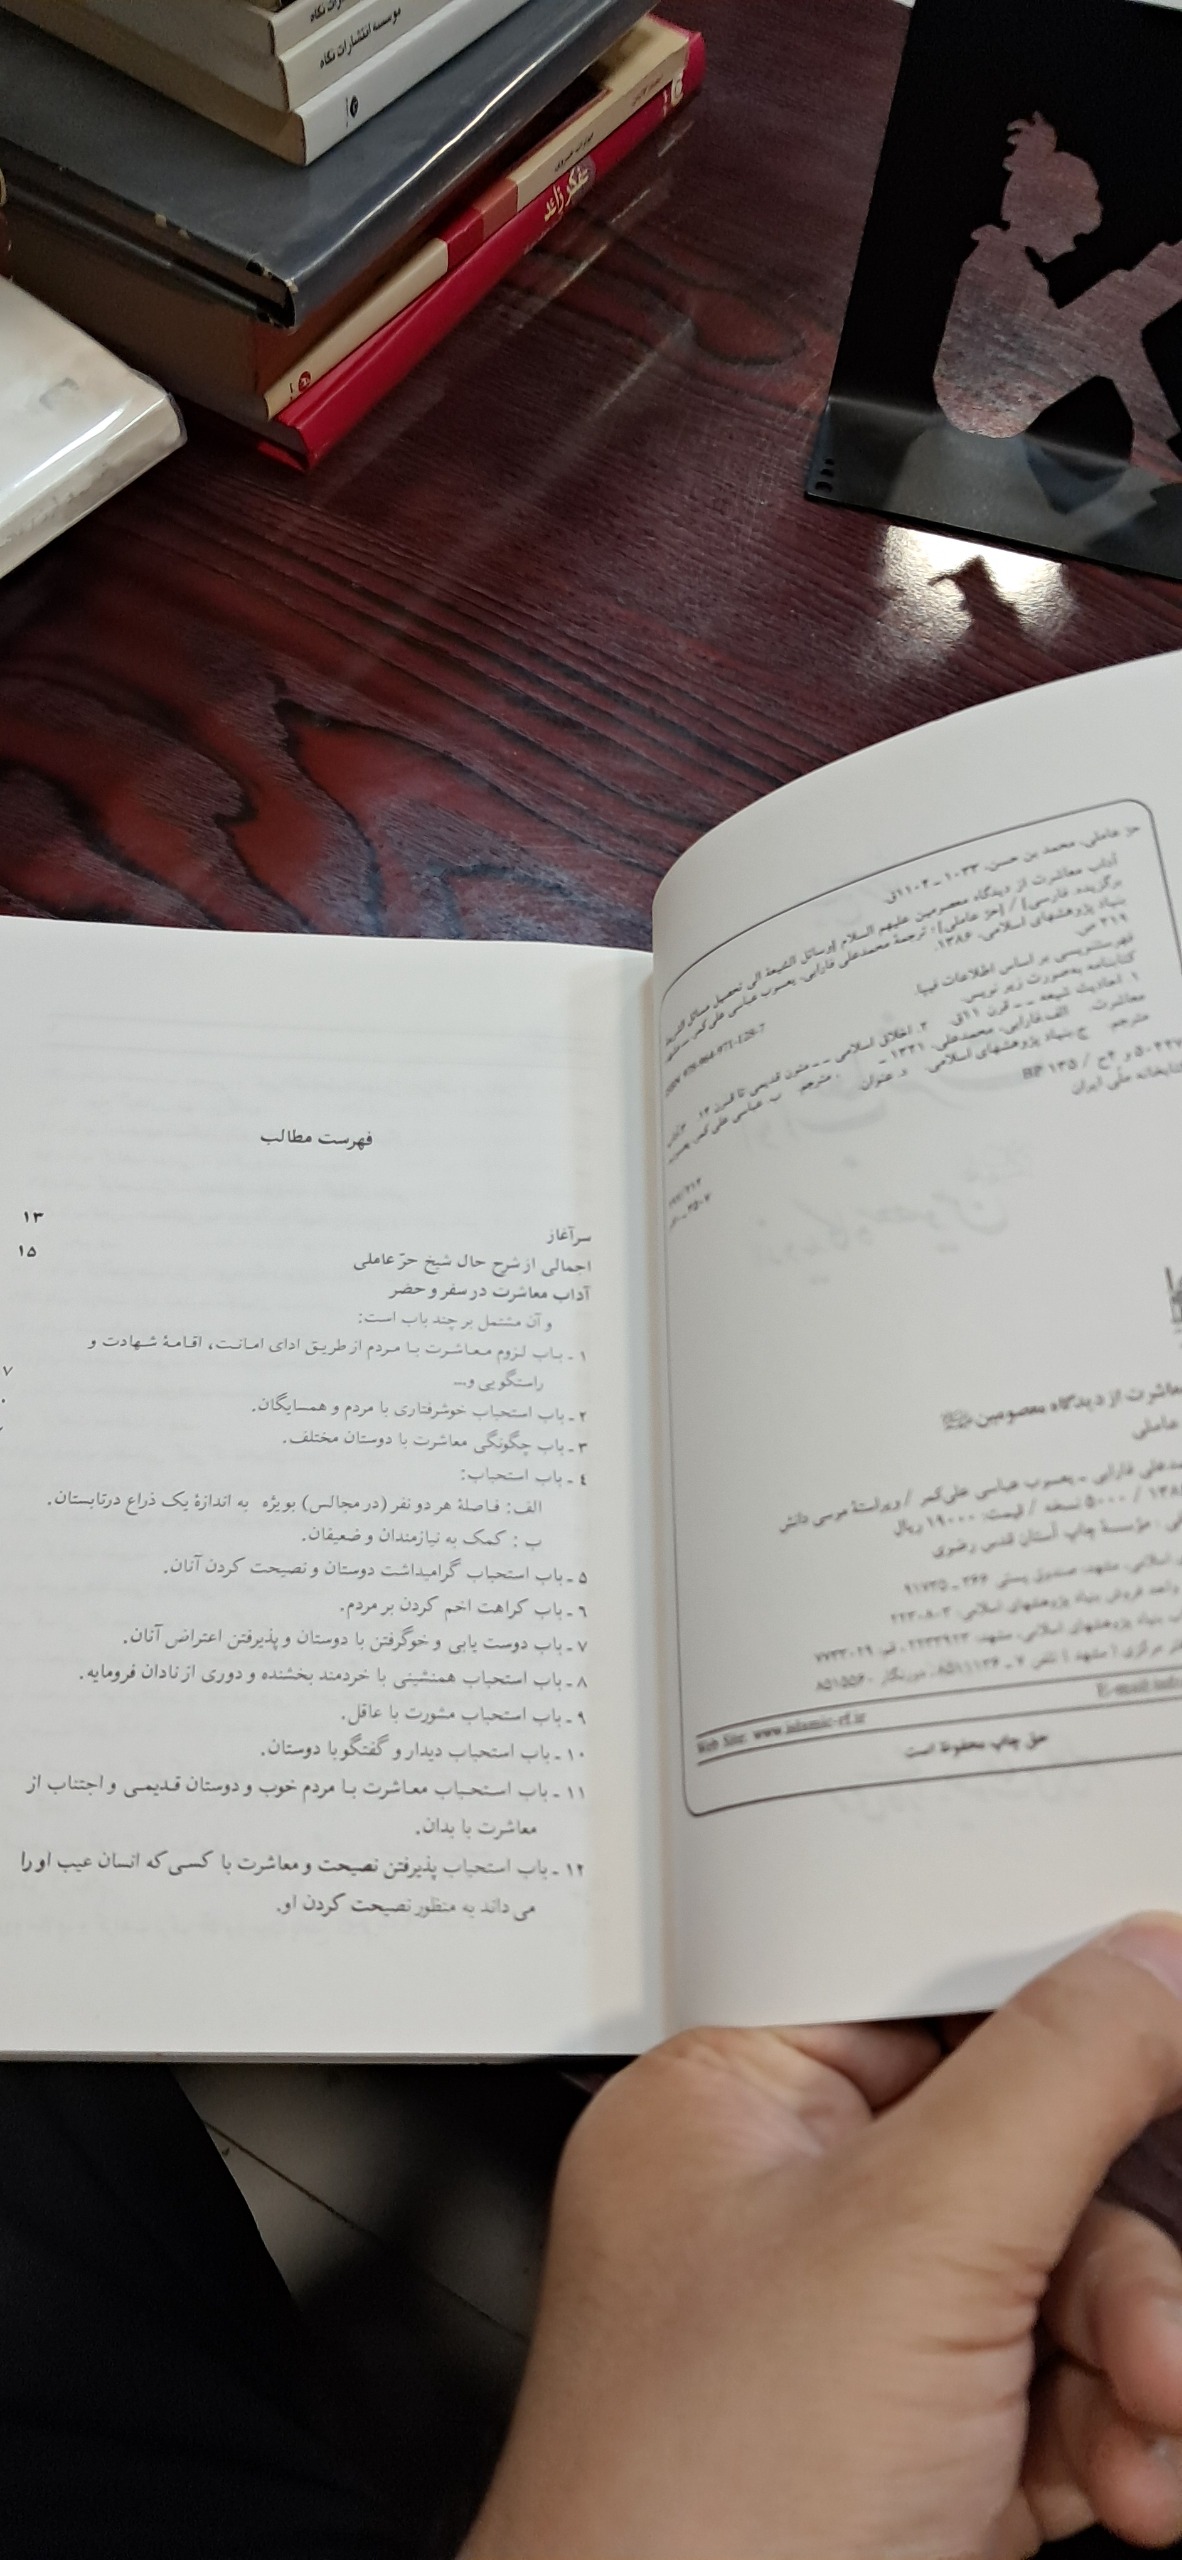 موسسه انتشارات نگاه
شکر زائد
حرّ عاملی، محمد بن حسن، ۱۰۳۳ ـ ۱۱۰۴ق.
آداب معاشرت از دیدگاه معصومین علیهم السلام [وسائل الشیعة الی تحصیل مسائل الشریعة
برگزیده. فارسی] / [حرّ عاملی]؛ ترجمهٔ محمدعلی فارابی، یعسوب عباسی علی‌کمر. ـ مشهد
بنیاد پژوهشهای اسلامی، ۱۳۸۶.
۳۱۹ ص.
ISBN 978-964-971-128-7
فهرستنویسی بر اساس اطلاعات فیپا.
کتابنامه به‌صورت زیر نویس.
۱. احادیث شیعه ـ ـ قرن ۱۱ق. ۲. اخلاق اسلامی ـ ـ متون قدیمی تا قرن ۱۴.
معاشرت الف.فارابی، محمدعلی، ۱۳۳۱ ـ ، مترجم. ب. عباسی علی‌کمر، یعسوب،
مترجم ج.بنیاد پژوهشهای اسلامی. د. عنوان.
BP ۱۳۵ /
کتابخانه ملّی ایران
معاشرت از دیدگاه معصومین
عاملی
علی فارابی ـ یعسوب عباسی علی‌کمر / ویراستهٔ موسی دانش
۵۰۰۰ نسخه / قیمت: ۱۹۰۰۰ ریال
مؤسسهٔ چاپ آستان قدس رضوی
اسلامی، مشهد: صندوق پستی ۳۶۶ ـ ۹۱۷۳۵
واحد فروش بنیاد پژوهشهای اسلامی: ۲۲۳۰۸۰۳
بنیاد پژوهشهای اسلامی، مشهد: ۲۲۳۳۹۲۳، قم: ۷۷۳۳۰۲۹
مرکزی (مشهد) تلفن ۷ ـ ۸۵۱۱۱۳۶، دورنگار ۸۵۱۵۵۶۰
Web Site: www.islamic-rf.ir
E-mail:
حق چاپ محفوظ است
فهرست مطالب
سرآغاز ۱۳
اجمالی از شرح حال شیخ حرّ عاملی ۱۵
آداب معاشرت در سفر و حضر
و آن مشتمل بر چند باب است:
۱ ـ باب لزوم معاشرت با مردم از طریق ادای امانت، اقامهٔ شهادت و
راستگویی و...
۲ ـ باب استحباب خوشرفتاری با مردم و همسایگان.
۳ ـ باب چگونگی معاشرت با دوستان مختلف.
٤ ـ باب استحباب:
الف: فاصلهٔ هر دو نفر (در مجالس) بویژه به اندازهٔ یک ذراع درتابستان.
ب : کمک به نیازمندان و ضعیفان.
۵ ـ باب استحباب گرامیداشت دوستان و نصیحت کردن آنان.
٦ ـ باب کراهت اخم کردن بر مردم.
۷ ـ باب دوست یابی و خوگرفتن با دوستان و پذیرفتن اعتراض آنان.
۸ ـ باب استحباب همنشینی با خردمند بخشنده و دوری از نادان فرومایه.
۹ ـ باب استحباب مشورت با عاقل.
۱۰ ـ باب استحباب دیدار و گفتگو با دوستان.
۱۱ ـ باب استحباب معاشرت با مردم خوب و دوستان قدیمی و اجتناب از
معاشرت با بدان.
۱۲ ـ باب استحباب پذیرفتن نصیحت و معاشرت با کسی که انسان عیب او را
می داند به منظور نصیحت کردن او.